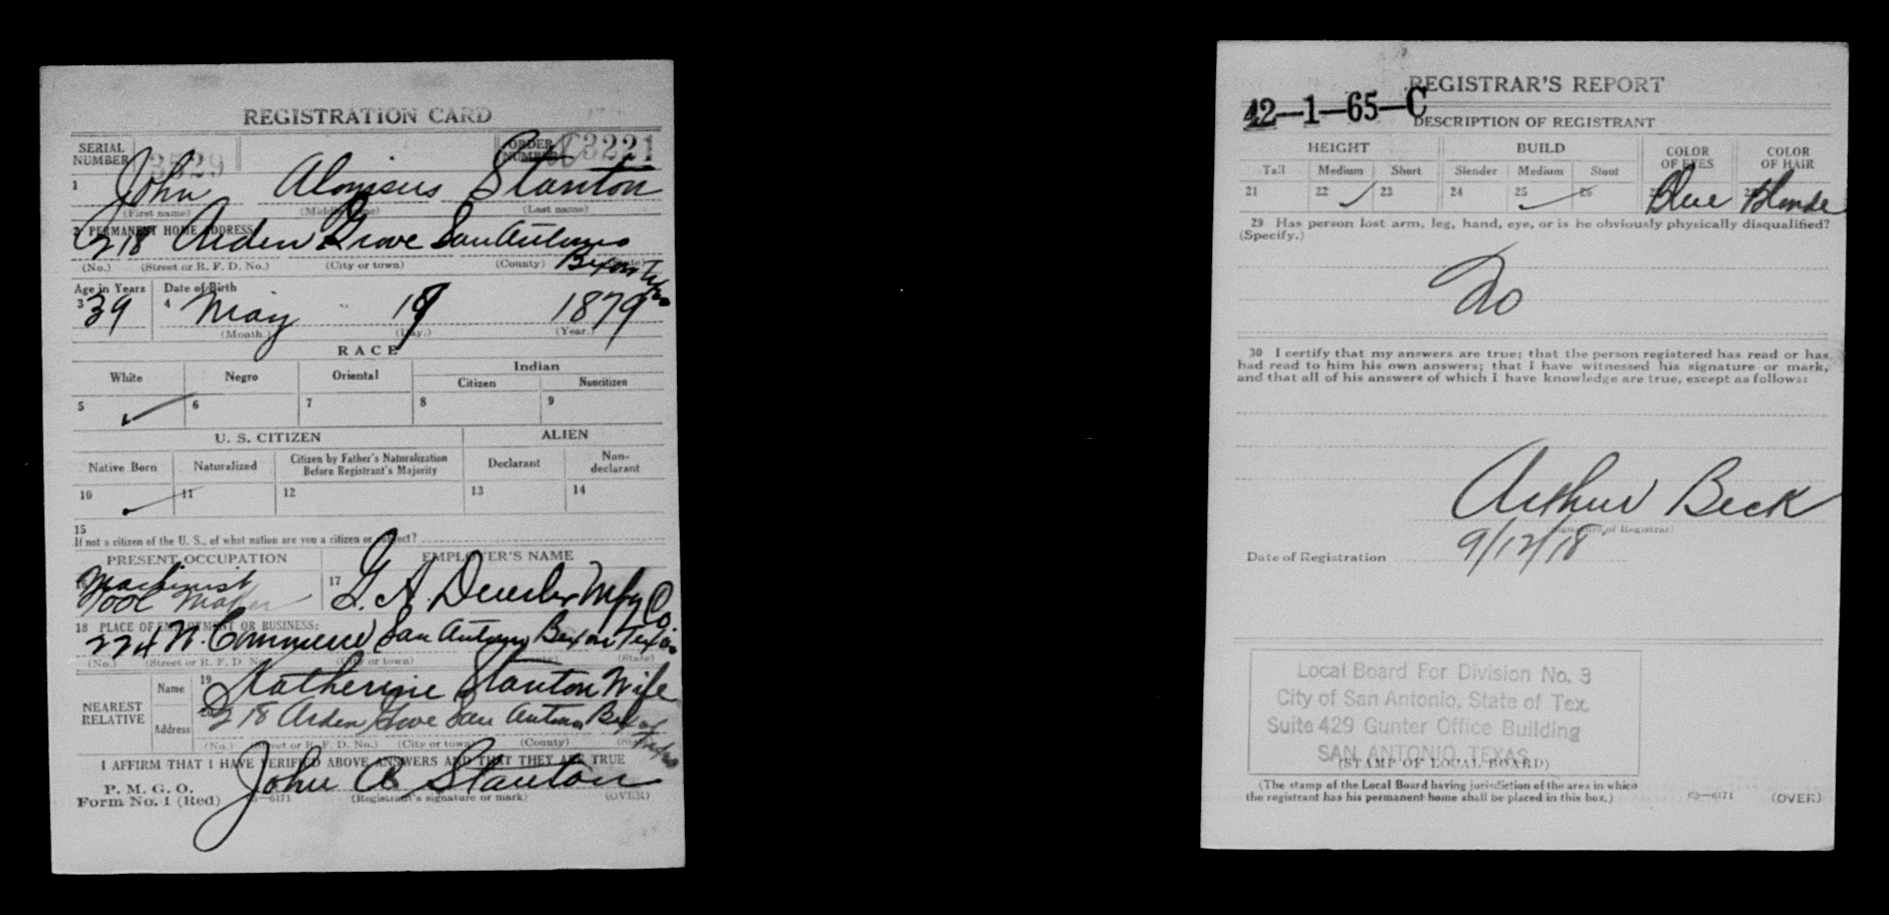 REGISTRATION CARD
SERIAL NUMBER 3529 ORDER NUMBER A3221
1 John Aloysius Stanton
(First name) (Middle name) (Last name)
2 PERMANENT HOME ADDRESS:
218 Arden Grove San Antonio Bexar Texas
(No.) (Street or R. F. D. No.) (City or town) (County) (State)
Age in Years Date of Birth
3 39 4 May 19 1879
(Month.) (Day.) (Year.)
RACE
White Negro Oriental Indian
Citizen Noncitizen
5 ✓ 6 7 8 9
U. S. CITIZEN ALIEN
Native Born Naturalized Citizen by Father's Naturalization Before Registrant's Majority Declarant Non-declarant
10 ✓ 11 12 13 14
15
If not a citizen of the U. S., of what nation are you a citizen or subject?
PRESENT OCCUPATION EMPLOYER'S NAME
Machinist
Tool Maker 17 G. A. Mfg Co.
18 PLACE OF EMPLOYMENT OR BUSINESS:
224 W. Commerce San Antonio Bexar Texas
(No.) (Street or R. F. D. No.) (City or town) (State)
NEAREST RELATIVE
Name 19 Katherine Stanton Wife
Address 20 218 Arden Grove San Antonio Bexar Texas
(No.) (Street or R. F. D. No.) (City or town) (County) (State)
I AFFIRM THAT I HAVE VERIFIED ABOVE ANSWERS AND THAT THEY ARE TRUE
P. M. G. O.
Form No. 1 (Red) John A Stanton
6171 (Registrant's signature or mark) (OVER)
REGISTRAR'S REPORT
42—1—65—C
DESCRIPTION OF REGISTRANT
HEIGHT BUILD COLOR OF EYES COLOR OF HAIR
Tall Medium Short Slender Medium Stout
21 22 ✓ 23 24 25 ✓ 26 Blue Blonde
29 Has person lost arm, leg, hand, eye, or is he obviously physically disqualified?
(Specify.)
No
30 I certify that my answers are true; that the person registered has read or has
had read to him his own answers; that I have witnessed his signature or mark,
and that all of his answers of which I have knowledge are true, except as follows:
Arthur Beck
(Signature of Registrar)
Date of Registration 9/12/18
Local Board For Division No. 3
City of San Antonio, State of Tex.
Suite 429 Gunter Office Building
SAN ANTONIO, TEXAS
(STAMP OF LOCAL BOARD)
(The stamp of the Local Board having jurisdiction of the area in which
the registrant has his permanent home shall be placed in this box.)
03—6171 (OVER)